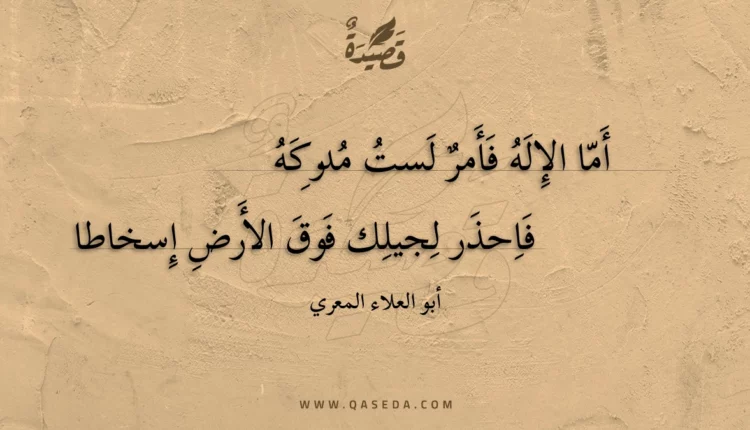 قَصِيْدَةٌ
أَمّا الإِلَهُ فَأَمرٌ لَستُ مُدرِكَهُ
فَاِحذَر لِجيلِك فَوقَ الأَرضِ إِسخاطا
أبو العلاء المعري
WWW.QASEDA.COM